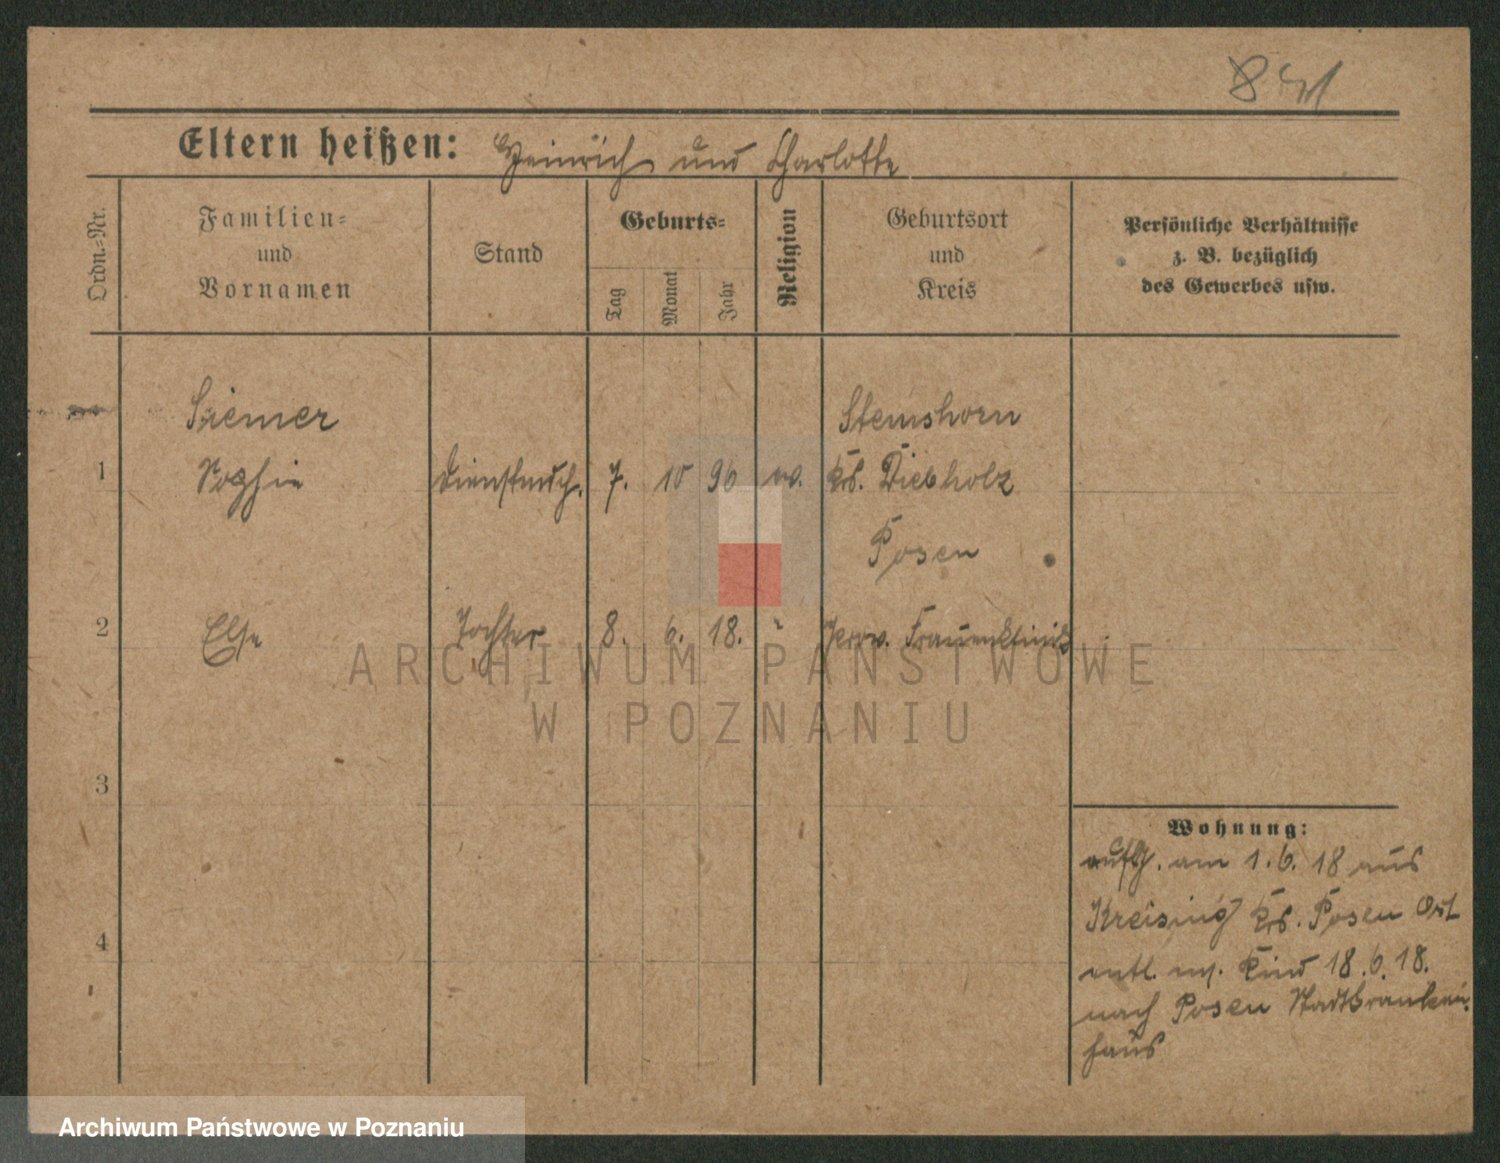 841
Eltern heißen: Heinrich und Charlotte
Ordn.-Nr.
Familien-
und
Vornamen
Stand
Geburts-
Tag
Monat
Jahr
Religion
Geburtsort
und
Kreis
Persönliche Verhältnisse
z. B. bezüglich
des Gewerbes usw.
Siemer
Stemshorn
1 Sophie Dienstmdch. 7. 10 96 ev. Krs. Diebholz
Posen
2 Else Tochter 8. 6. 18. Prov. Frauenklinik
3
4
Wohnung:
am 1.6.18 aus
Kreising Krs. Posen Ost
entl. m. Kind 18.6.18.
nach Posen Stadtkranken-
haus
ARCHIWUM PAŃSTWOWE
W POZNANIU
Archiwum Państwowe w Poznaniu